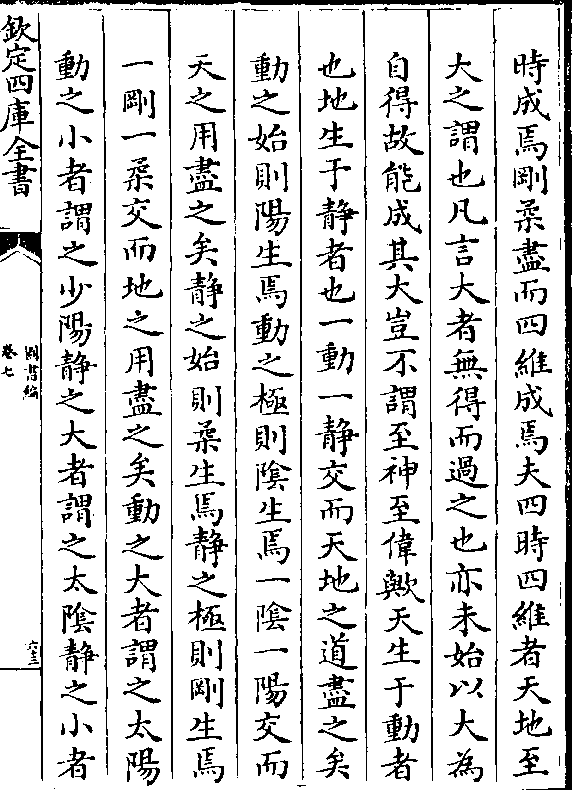 時成焉剛柔盡而四維成焉夫四時四維者天地至
大之謂也凡言大者無得而過之也亦未始以大為
自得故能成其大豈不謂至神至偉歟天生于動者
也地生于静者也一動一静交而天地之道盡之矣
動之始則陽生焉動之極則隂生焉一隂一陽交而
天之用盡之矣静之始則柔生焉静之極則剛生焉
一剛一柔交而地之用盡之矣動之大者謂之太陽
動之小者謂之少陽静之大者謂之太隂静之小者
欽定四庫全書
圖書編
卷七
六十三